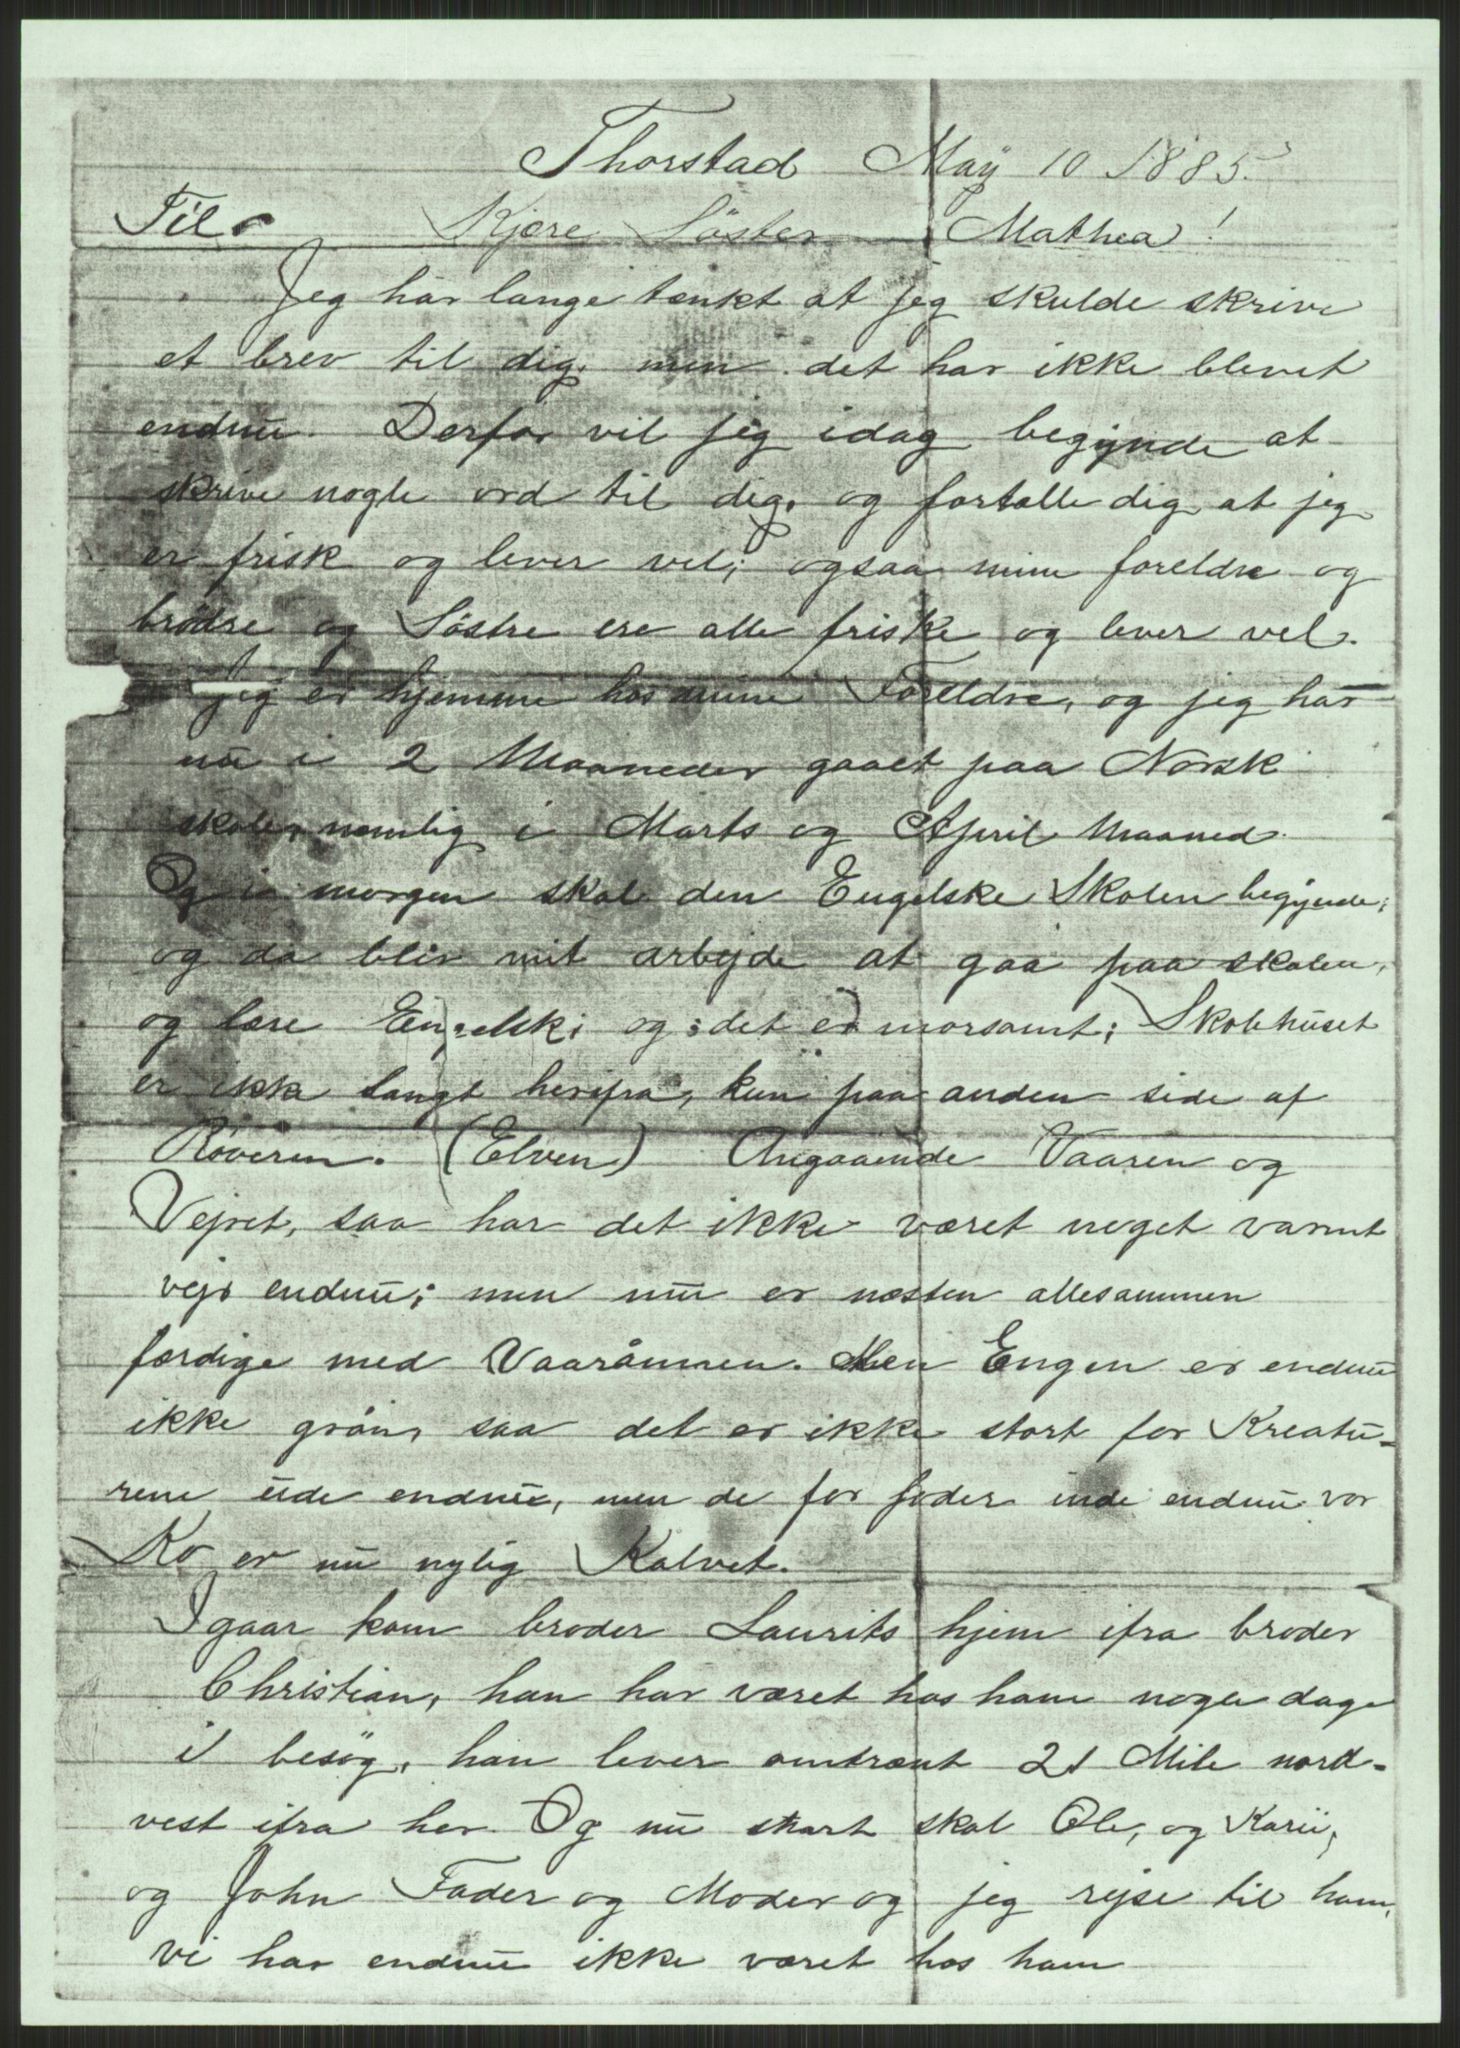 Thorstad May 10 1885.
Til Kjære Söster Mathea!
Jeg har længe tænkt at jeg skulde skrive
et brev til dig. men det har ikke blevet
endnu. Derfor vil jeg idag begynde at
skrive nogle ord til dig. og fortælle dig at jeg
er frisk og lever vel; ogsaa mine foreldre og
brødre og Söstre ere alle friske og lever vel.
Jeg er hjemme hos mine Foreldre, og jeg har
nu i 2 Maaneder gaaet paa Norsk
skole, nemlig i Marts og April Maaned.
Og i morgen skal den Engelske Skolen begynde;
og da blir mit arbejde at gaa paa skolen,
og lære Engelsk; og det er morsomt; Skolehuset
er ikke langt herifra, kun paa anden side af
Røveren. (Elven) Angaaende Vaaren og
Vejret, saa har det ikke været noget varmt
vejr endnu; men nu er næsten allesammen
færdige med Vaarånnen. Men Engen er endnu
ikke grön, saa det er ikke stort for Kreatu-
rene ude endnu, men de for foder inde endnu. vor
Ko er nu nylig Kalvet.
Igaar kom broder Laurits hjem ifra broder
Christian, han har været hos ham nogle dage
i besög, han lever omtrænt 21 Mile nord-
vest ifra her. Og nu snart skal Ole, og Kari,
og John Fader og Moder og jeg rejse til ham,
vi har endnu ikke været hos ham